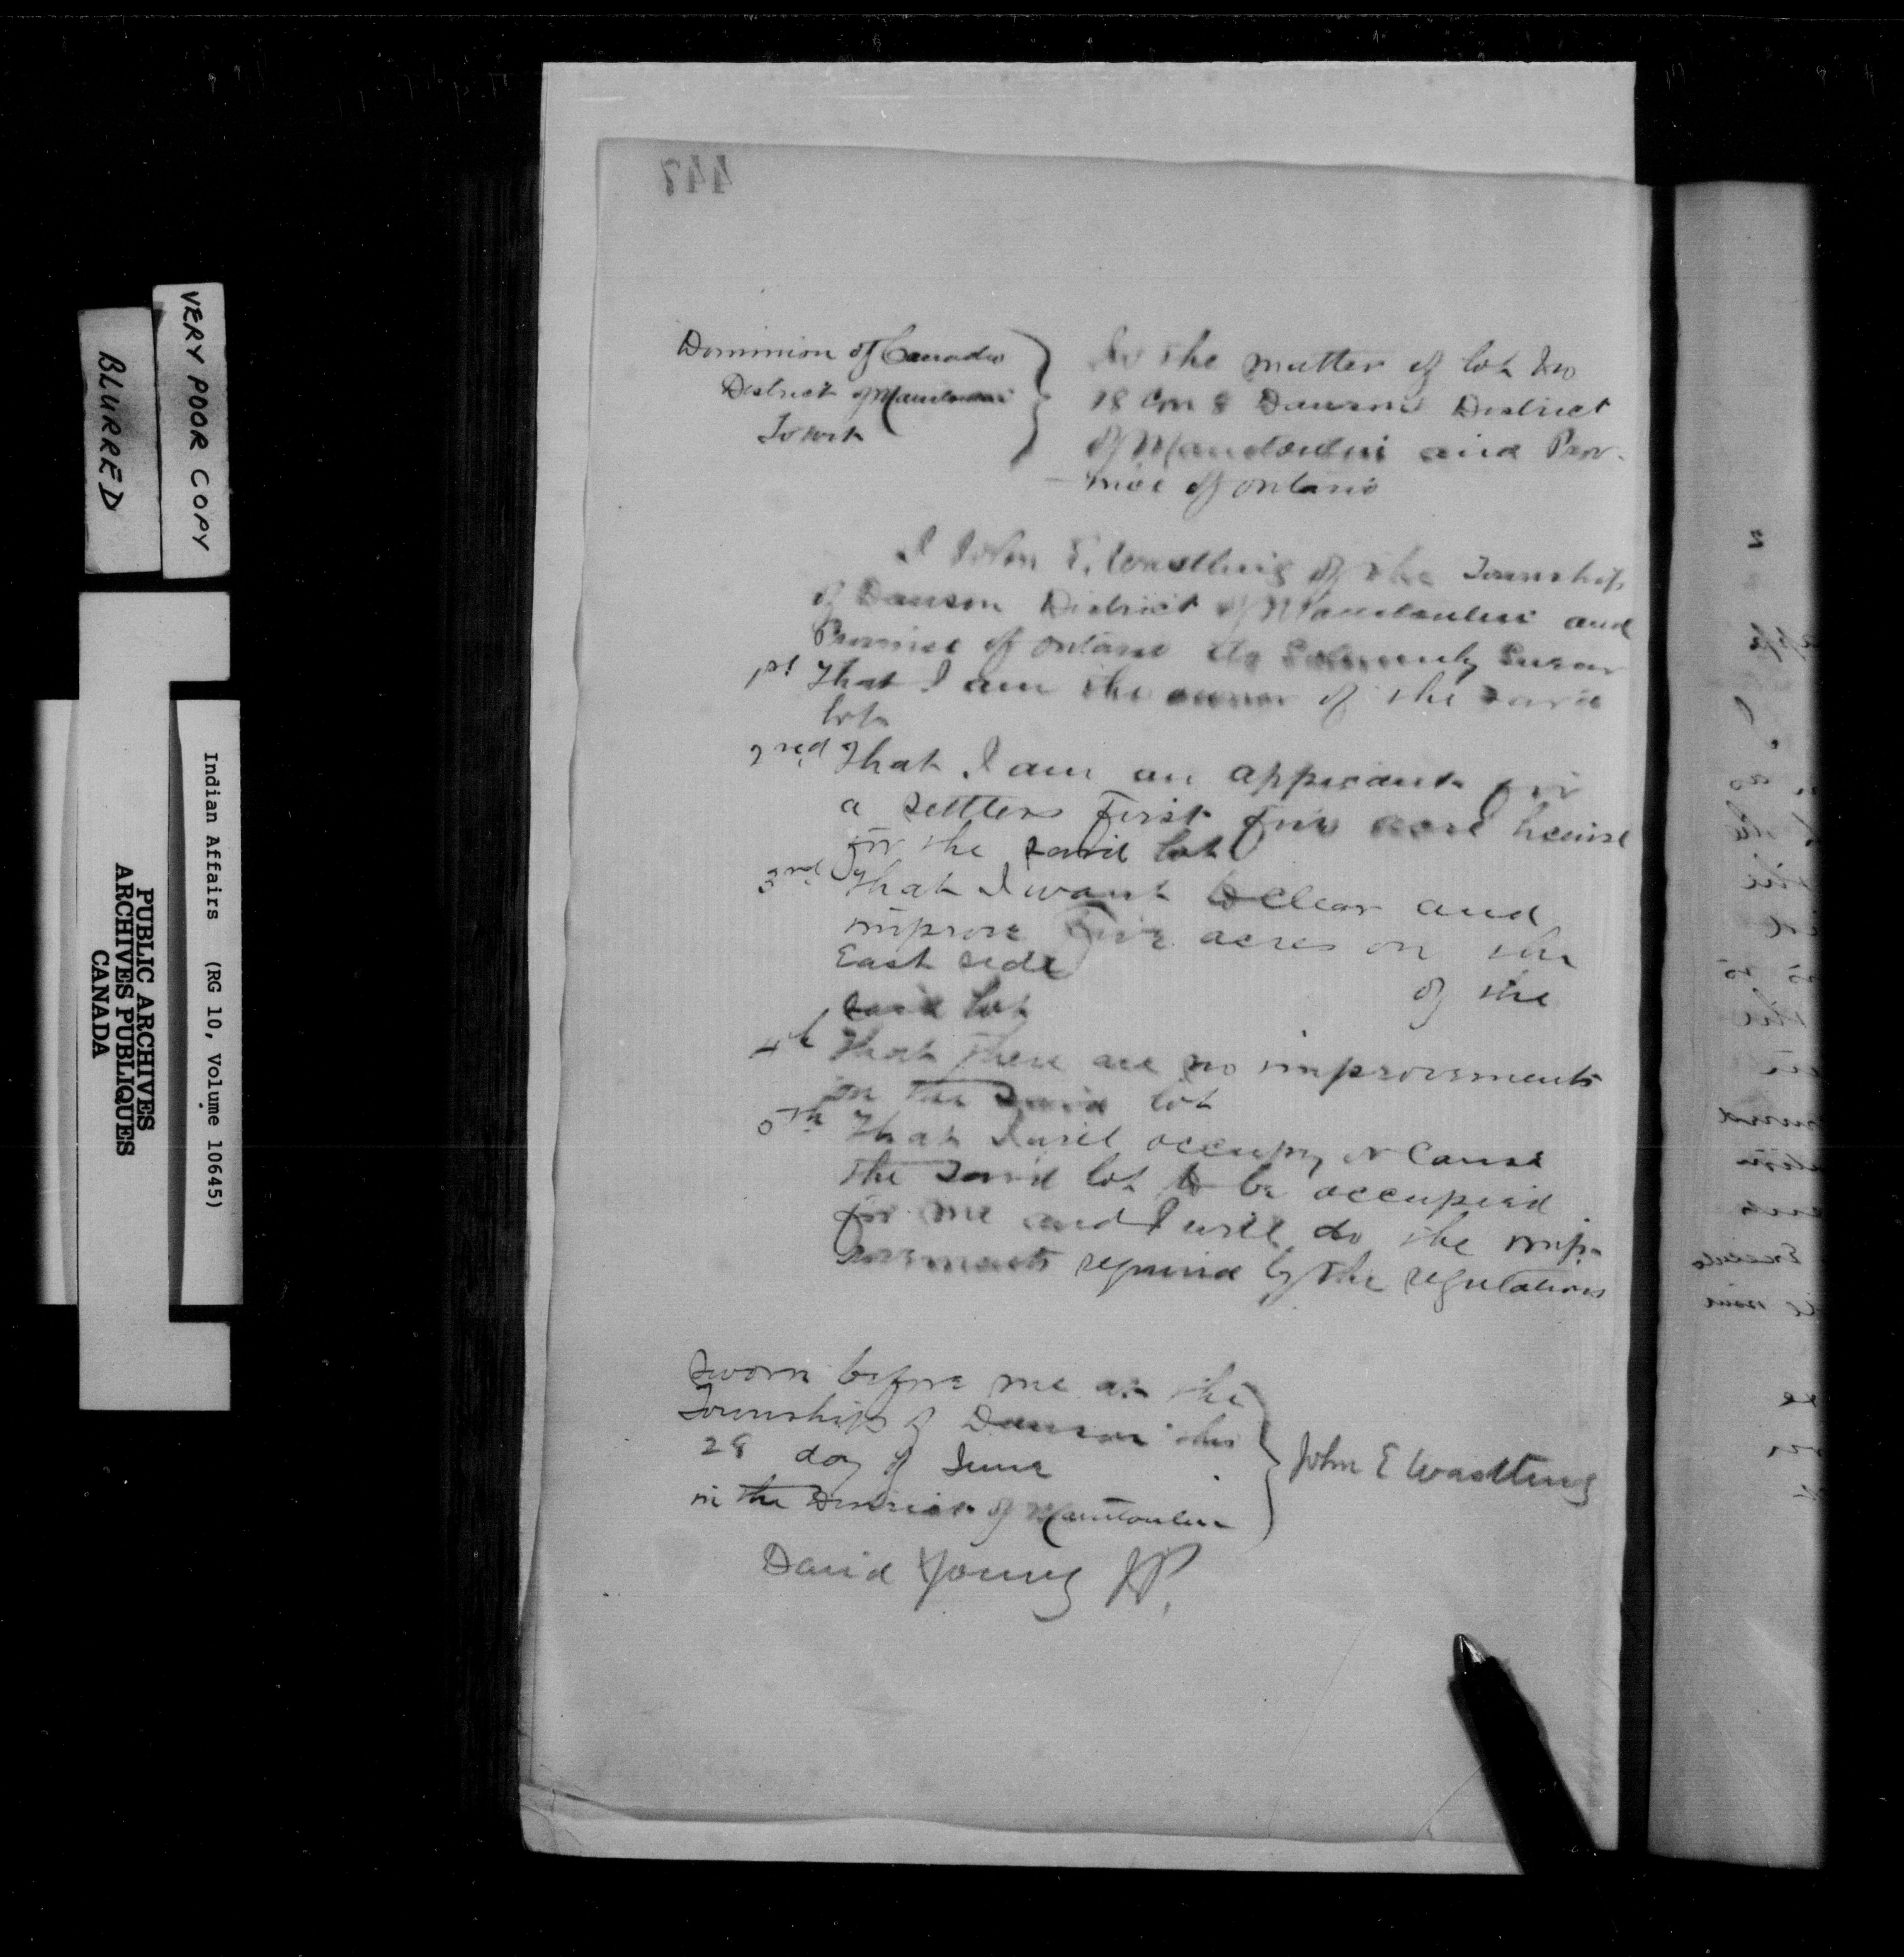 447
Dominion of Canada
District of Manitoulin
To wit
In the matter of lot No
18 Con 8 Dawson District
of Manitoulin and Prov-
ince of Ontario
I John E. Wastling of the Township
of Dawson District of Manitoulin and
Province of Ontario do Solemnly Swear
1st That I am the owner of the said
lot
2red That I am an appicant for
a settlers First five acre license
for the said lot
3rd That I want to clear and
improve Five acres on the
East side
of the
said lot
4th That there are no improvements
on the said lot
5th That I will occupy or Cause
the said lot to be occupied
for me and I will do the imp-
rovements required by the regulations
Sworn before me at the
Township of Dawson this
28 day of June
in the District of Manitoulin
John E Wastling
David Young JP.
VERY POOR COPY
BLURRED
Indian Affairs (RG 10, Volume 10645)
PUBLIC ARCHIVES
ARCHIVES PUBLIQUES
CANADA